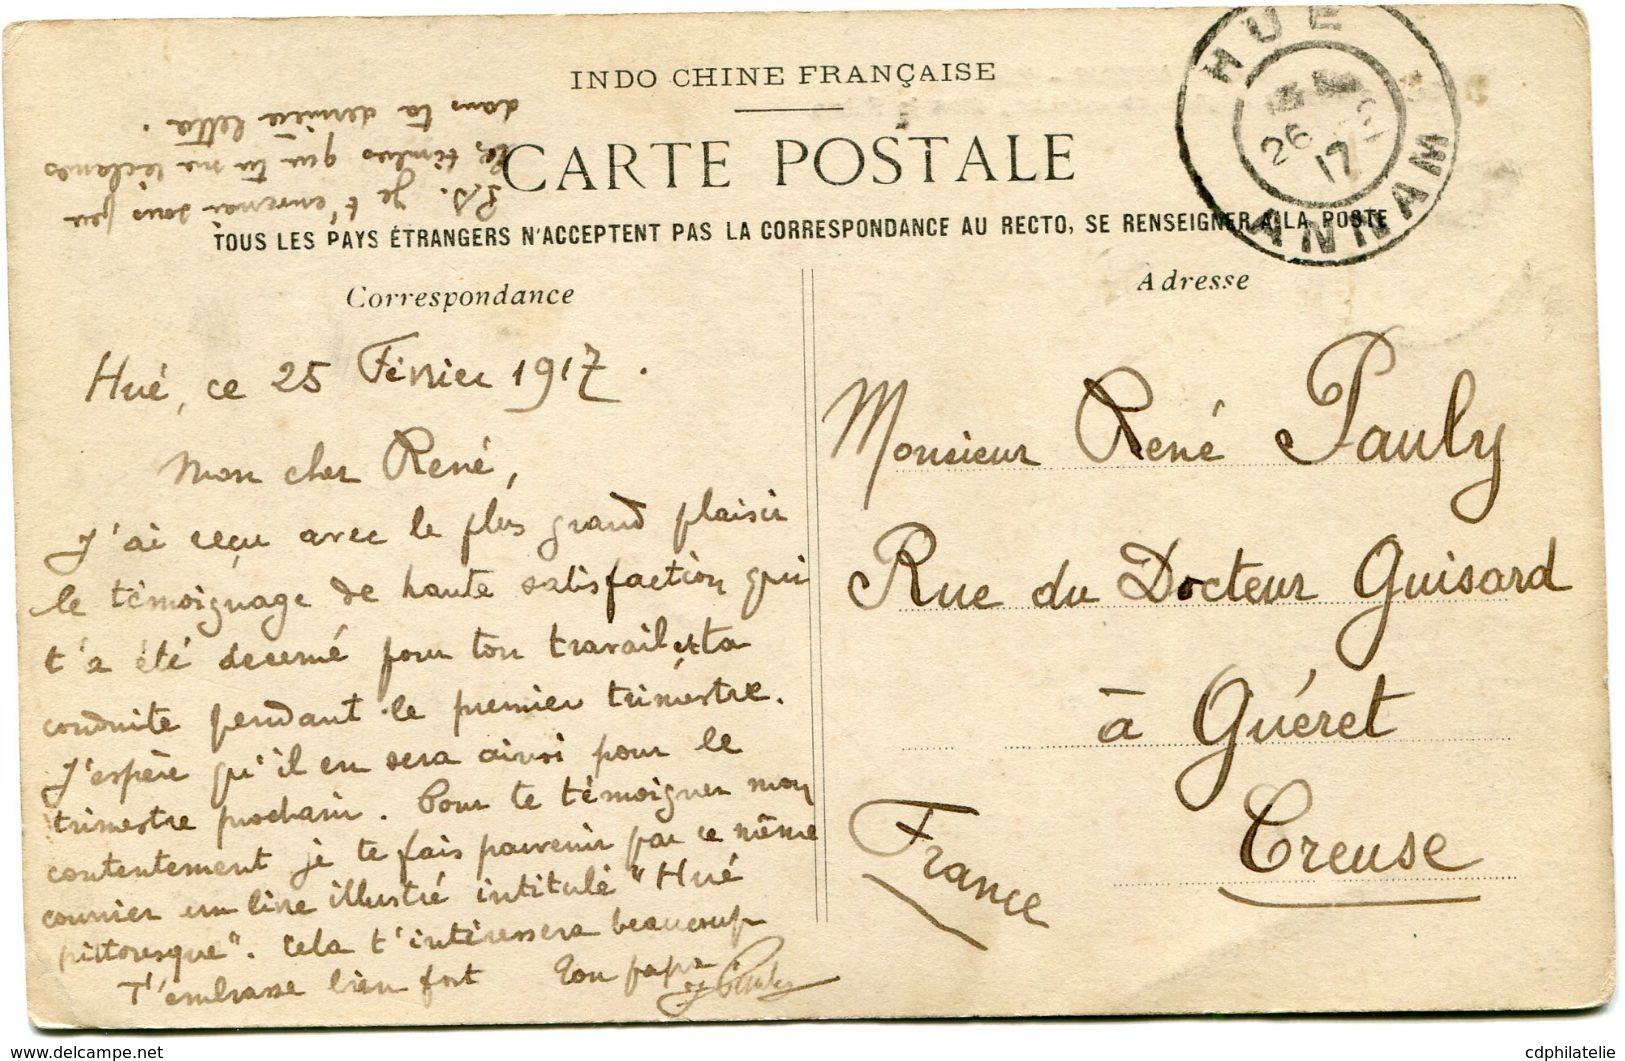 INDO CHINE FRANÇAISE
CARTE POSTALE
TOUS LES PAYS ÉTRANGERS N'ACCEPTENT PAS LA CORRESPONDANCE AU RECTO, SE RENSEIGNER A LA POSTE
HUE
26
17
ANNAM
Correspondance
Hué, ce 25 Février 1917.
Mon cher René,
J'ai reçu avec le plus grand plaisir
le témoignage de haute satisfaction qui
t'a été décerné pour ton travail et ta
conduite pendant le premier trimestre.
J'espère qu'il en sera ainsi pour le
trimestre prochain. Pour te témoigner mon
contentement je te fais parvenir par ce même
courrier un livre illustré intitulé "Hué
pittoresque". Cela t'intéressera beaucoup
T'embrasse bien fort Ton papa.
Pauly
P.S. Je t'enverrai sous peu
les timbres que tu me réclames
dans ta dernière lettre.
Adresse
Monsieur René Pauly
Rue du Docteur Guisard
à Guéret
Creuse
France
www.delcampe.net
cdphilatelie